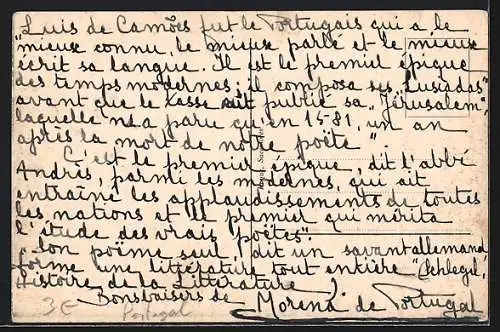 "Luis de Camões fut le Portugais qui a le
"mieux connu, le mieux parlé et le mieux
écrit sa langue. Il est le premier épique
des temps modernes; il composa ses "Lusiadas"
avant que le Tasse eût publié sa "Jérusalem"
laquelle n'a paru qu'en 1581, un an
après la mort de notre poète".
C'est le premier épique, dit l'abbé
Andrès, parmi les modernes, qui ait
entraîné les applaudissements de toutes
les nations et le premier qui mérita
l'étude des vrais poètes".
Son poème seul, dit un savant allemand
forme une littérature tout entière" (Schlegel,
Histoire de la Littérature)
Bons baisers de Morena de Portugal
3€ Portugal